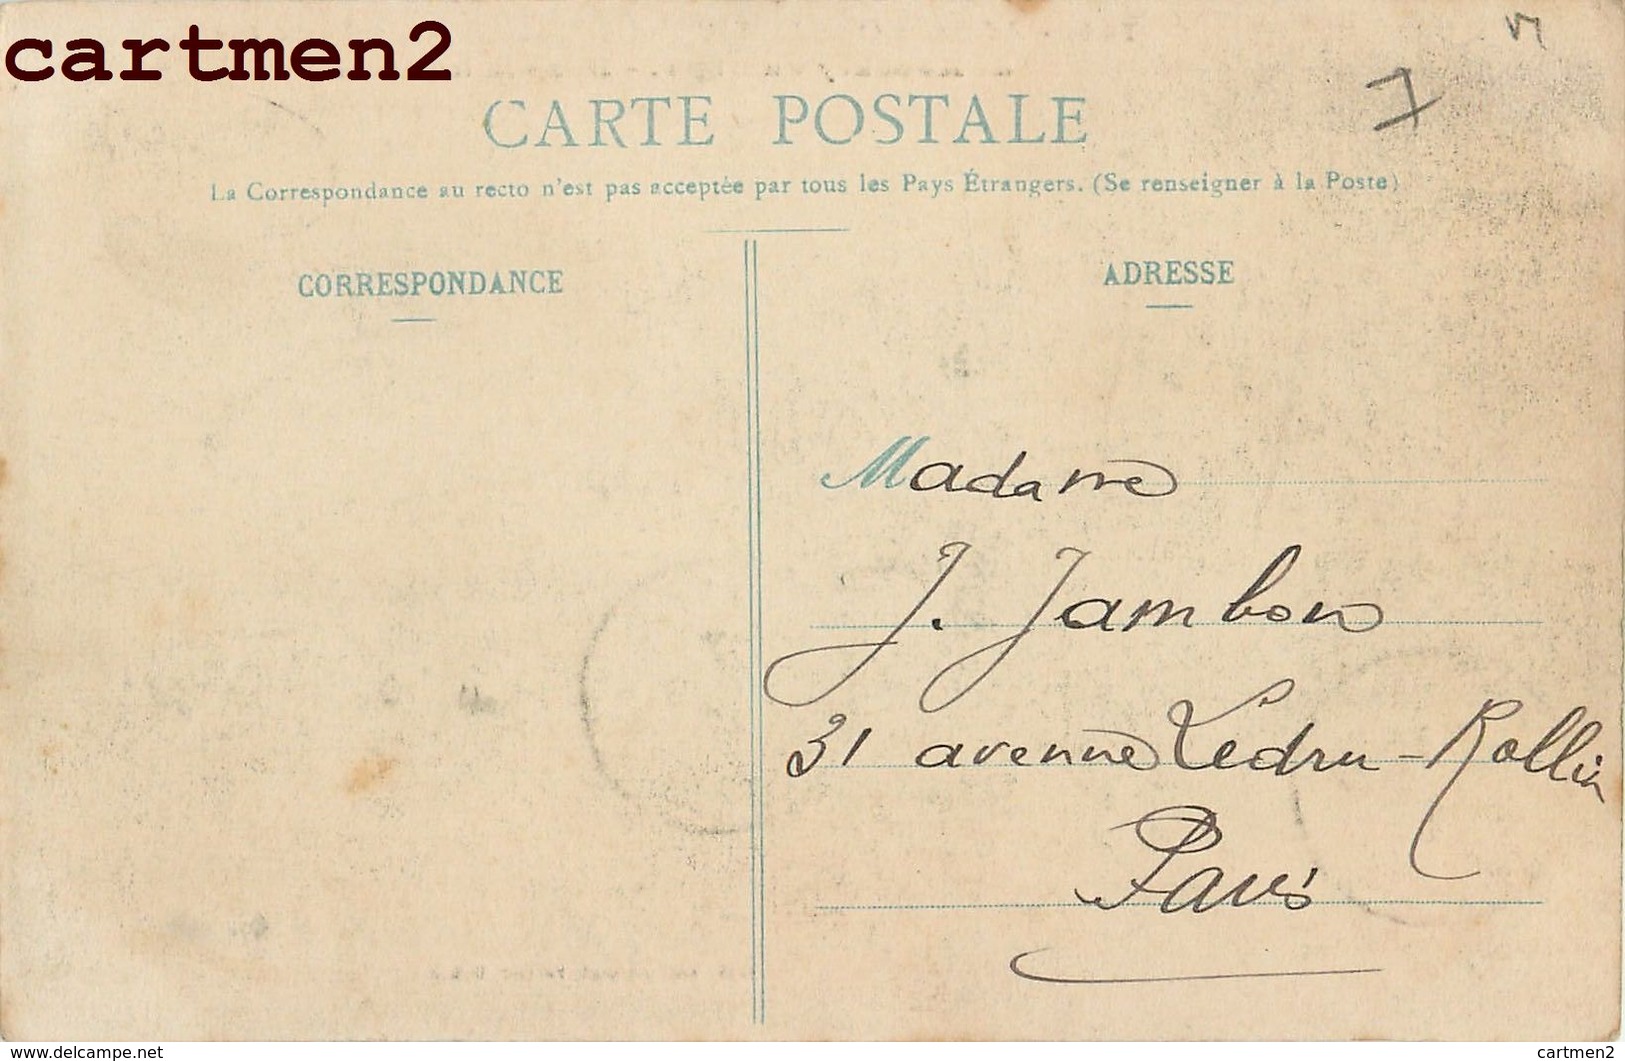 cartmen2
CARTE POSTALE
La Correspondance au recto n'est pas acceptée par tous les Pays Étrangers. (Se renseigner à la Poste)
CORRESPONDANCE
ADRESSE
Madame
J. Jambon
31 avenue Ledru-Rollin
Paris
www.delcampe.net
cartmen2